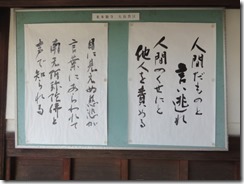 人間だものと
言い逃れ
人間のくせにと
他人を責める
目に見えぬ慈悲が
言葉にあらわれて
南无阿弥陀佛と
声で知られる